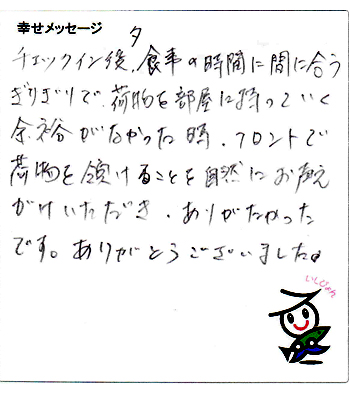 幸せメッセージ
チェックイン後、夕食事の時間に間に合う
ぎりぎりで、荷物を部屋に持っていく
余裕がなかった時、フロントで
荷物を預けることを自然にお声え
がけいただき、ありがたかった
です。ありがとうございました。
いしぴょん